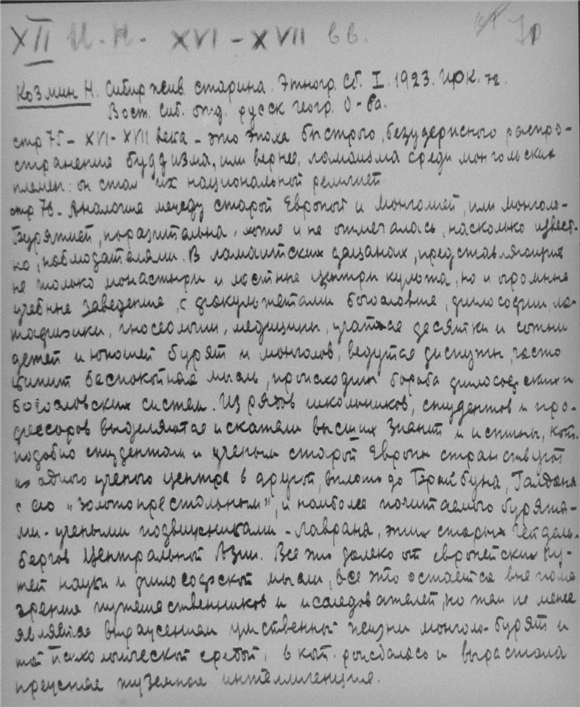 XII И. Н. XVI – XVII вв.
Козмин Н. Сибир. жив. старина. Этногр. Сб. I. 1923. Ирк. 72.
Вост. сиб. отд. русск геогр. О-ва.
стр 75 – XVI – XVII века – это эпоха быстрого, безудержного распро-
странения буддизма, или вернее, ламаизма среди монгольских
племен: он стал их национальной религией
стр 76. Аналогия между старой Европой и Монголией, или монголо-
Бурятией, поразительна, хотя и не отмечалась, насколько извест-
но, наблюдателями. В ламаитских дацанах, представляющих
не только монастыри и местные центры культа, но и огромные
учебные заведения, с факультетами богословия, философии, ме-
тафизики, гносеологии, медицины, учатся десятки и сотни
детей и юношей бурят и монголов, ведутся диспуты, часто
кипит беспокойная мысль, происходит борьба философских и
богословских систем. Из рядов школьников, студентов и про-
фессоров выделяются искатели высших знаний и истины, кот.
подобно студентам и ученым старой Европы странствуют
из одного ученого центра в другой, вплоть до Гумбума, Галдана
с его "золотопрестольным", и наиболее почитаемого бурята-
ми-учеными подвижниками – Лаврана, этих старых Гейдель-
бергов Центральной Азии. Все это далеко от европейских пу-
тей науки и философской мысли, все это остается вне поля
зрения путешественников и исследователей, но тем не менее
является выражением умственной жизни монголо-бурят и
той психологической средой, в кот. рождалась и вырастала
прежняя туземная интеллигенция.